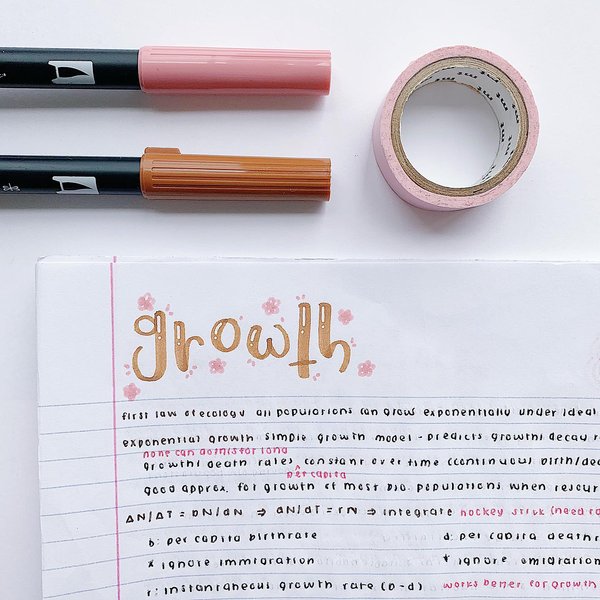 mt mt mt mt
growth
first law of ecology all populations can grow exponentially under ideal
exponential growth simple growth model - predicts growth/decay r
none can do this for long
growth/death rates constant over time (continuous birth/dea
per capita
good approx. for growth of most bio. populations when resour
ΔN/ΔT = bN/dN ⇒ dN/dT = rN ⇒ integrate hockey stick (need to
b: per capita birthrate d: per capita deathr
* ignore immigration * ignore emigration
r: instantaneous growth rate (b-d) works better for growth